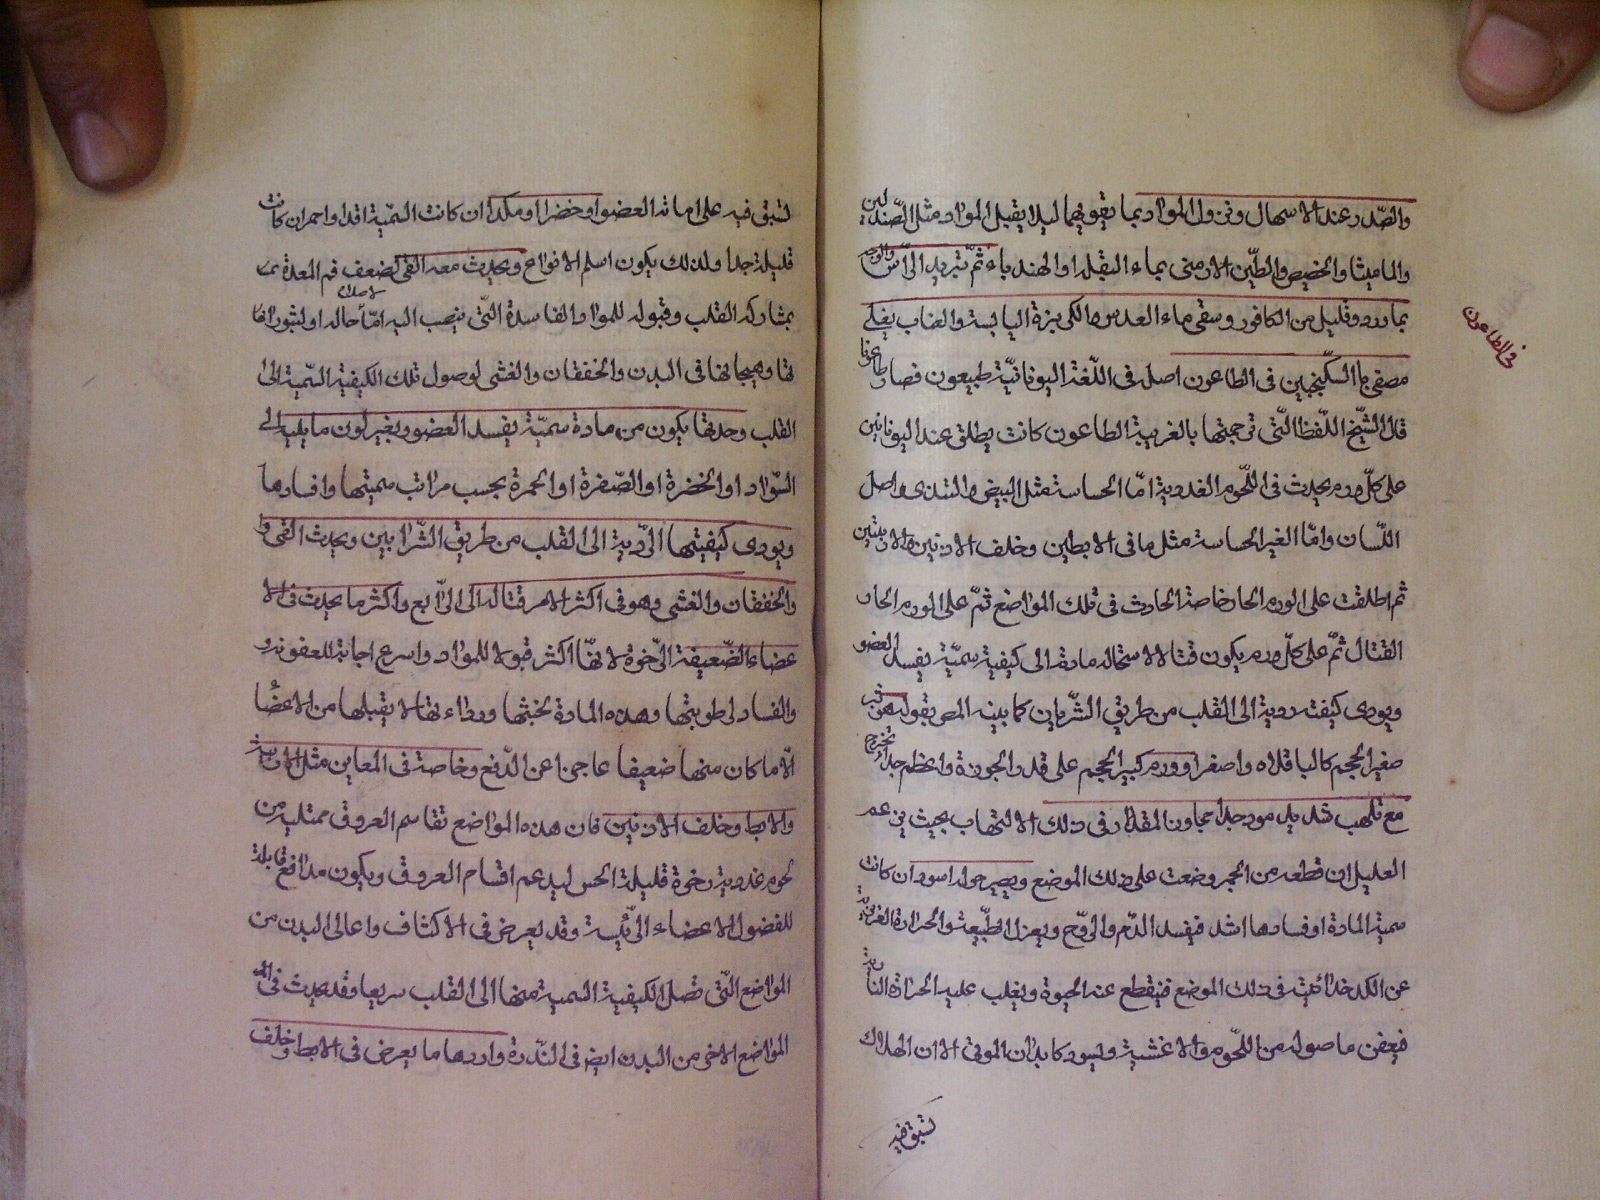 والصدر عند الاسهال ونزول المواد بما يقويهما ليلا يقبل المواد مثل الصندلين
والماميثا والحضض والطين الارمنى بماء البقلة او الهندباء ثم تبريد الراس والوجه
بماورد وقليل من الكافور وسقى ماء العدس مالكزبرة اليابسة والعناب يغلى
مصفى بالسكنجبين فى الطاعون اصله فى اللغة اليونانية طيعون فصار طاعونا
فى الطاعون
قال الشيخ اللفظ التى ترجمتها بالعربية الطاعون كانت يطلق عند اليونانيين
على كل ورم يحدث فى اللحوم الغدوية اما الحساسة مثل البيض والثندى واصل
اللسان واما الغير الحساسة مثل ما فى الابطين وخلف الاذنين والاربيتين
ثم اطلقت على الورم الحار خاصة الحادث فى تلك المواضع ثم على الورم الحار
القتال ثم على كل ورم يكون قتالا لاستحالة مادة الى كيفية سمية يفسد العضو
ويودى كيفته ردية الى القلب من طريق الشرمان كما بينه المص بقوله هو بثر
صغير الحجم كالباقلاه واصغر او ورم كبير الحجم على قدر الجوزة واعظم جدا يخرج
مع تلهب شديد مورجدا مجاوز المقدار فى ذلك الالتهاب بحيث يزعم
العليل ان قطعه من الجمر وضعت على ذلك الموضع ويصير حوله اسود ان كانت
سمية المادة او فسادها اشد فيفسد الدم والروح ويعزل الطبيعة والحرارة الغريزية
عن الكدخدائية فى ذلك الموضع فينقطع عنه الحيوة ويغلب عليه الحرارة النارية
فيعفن ما صوله من اللحوم والاغشية ويسود كابدان الموتى الا ان الهلاك
تستبق فيه
لتبق فيه على اماته العضو او خضرا او مكدا ان كانت السمية اقدا واحمر ان كانت
قليلة جدا ولذلك يكون اسلم الانواع ويحدث معه القى لضعف فم المعدة
بمشاركة القلب وقبوله للمواد الفاسدة التى ينصب اليه اما حاله او لثورانها
لها وهيجانها فى البدن والخفقان والغشى لوصول تلك الكيفية السمية الى
القلب وحدثها يكون من مادة سمية يفسد العضو ويغير لون ما يليه الى
السواد او الخضرة او الصفرة او الحمرة بحسب مراتب سميتها وافسادها
ويودى كيفيتها الردية الى القلب من طريق الشرايين ويحدث القى و
والخفقان والغشى وهو فى اكثر الامر قتاله الى الرابع واكثر ما يحدث فى الا
عضاء الضعيفة الرخوة لانها اكثر قبولا للمواد واسرع اجابة للعفونة و
والفساد لرطوبتها وهذه المادة لخبثها ورداءتها لا يقبلها من الاعضا
الا ما كان منها ضعيفا عاجزا عن الدفع وخاصة فى المغابن مثل الاربية
والابط وخلف الاذنين فان هذه المواضع تقاسم العروق ممتلية من
لحوم غدوية رخوة قليلة الحس ليدعم اقسام العروق ويكون مدافع قابلة
للفضول الاعضاء الرئيسة وقد يعرض فى الاكتاف واعالى البدن من
المواضع التى تصل الكيفية السمية منها الى القلب سريعا وقد يحدث فى
المواضع الاخر من البدن ايض فى الندرة واردها ما يعرض فى الابط وخلف